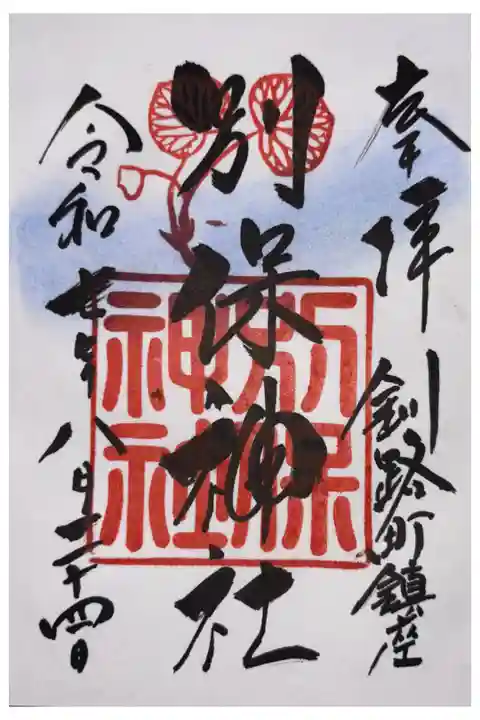 奉拝
釧路町鎮座
別保神社
別保
神社
令和年八月二十四日